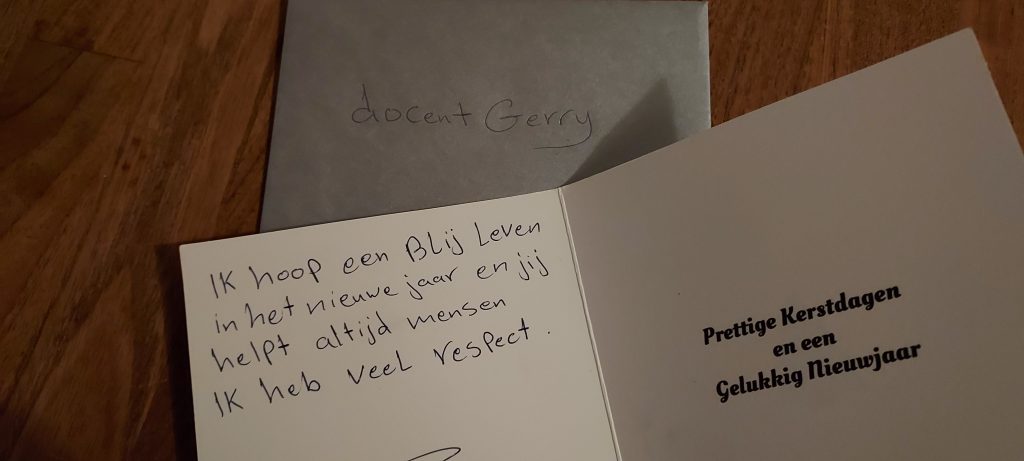 docent Gerry
IK hoop een Blij Leven
in het nieuwe jaar en jij
helpt altijd mensen
IK heb veel respect.
Prettige Kerstdagen
en een
Gelukkig Nieuwjaar